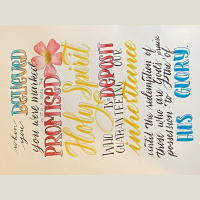 when you BELIEVED
you were marked
PROMISED
Holy Spirit
WHO IS DEPOSIT
GUARANTEEING OUR
inheritance
until the redemption of
those who are God's
possession to the praise of
HIS GLORY